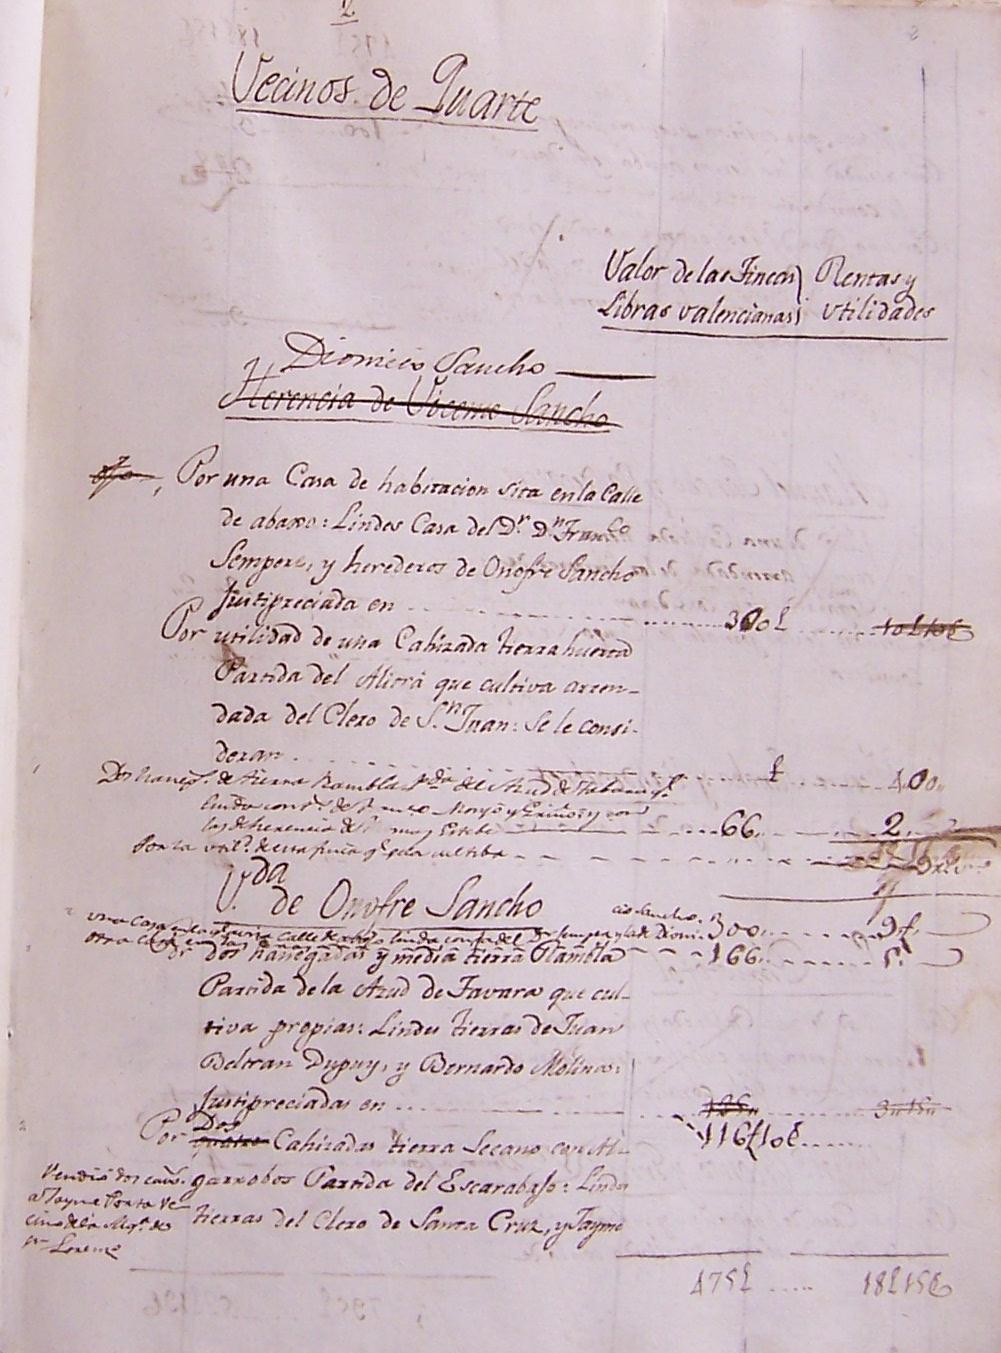 Vecinos de Quarte
Valor de las Fincas Rentas y
Libras valencianas utilidades
Dionicio Sancho
Herencia de Vicente Sancho
Por una Casa de habitacion sita en la Calle
de abaxo: Lindes Casa del D.r D.n Fran.co
Sempere, y herederos de Onofre Sancho
Justipreciada en 300£
Por utilidad de una Cahizada tierra huerta
Partida del Alitrá que cultiva arren-
dada del Clero de S.n Juan: Se le consi-
deran £ 400
Dos haneg.s de tierra Rambla p.da del Azud de
linda con
las de herencia de 66 2
Por la util.d de esta finca q.e cultiba
V.da de Onofre Sancho
una Casa en la Calle de abaxo linda con la del D.r Sempere y la de Dioni-
cio Sancho. 300 9£
otra Casa en 166 5£
Por dos hanegadas y media tierra Rambla
Partida de la Azud de Favara que cul-
tiva propias: Lindes tierras de Juan
Beltran Dupuy, y Bernardo Molinos:
Justipreciadas en 125 3 15
116£10
Dos
Por quatro Cahizadas tierra Secano con Al-
garrobos Partida del Escarabajo: Lindes
tierras del Clero de Santa Cruz, y Jayme
Vendió dos cau.s
a Jayme Porta ve-
cino de la
Lorente
475£ 18£15